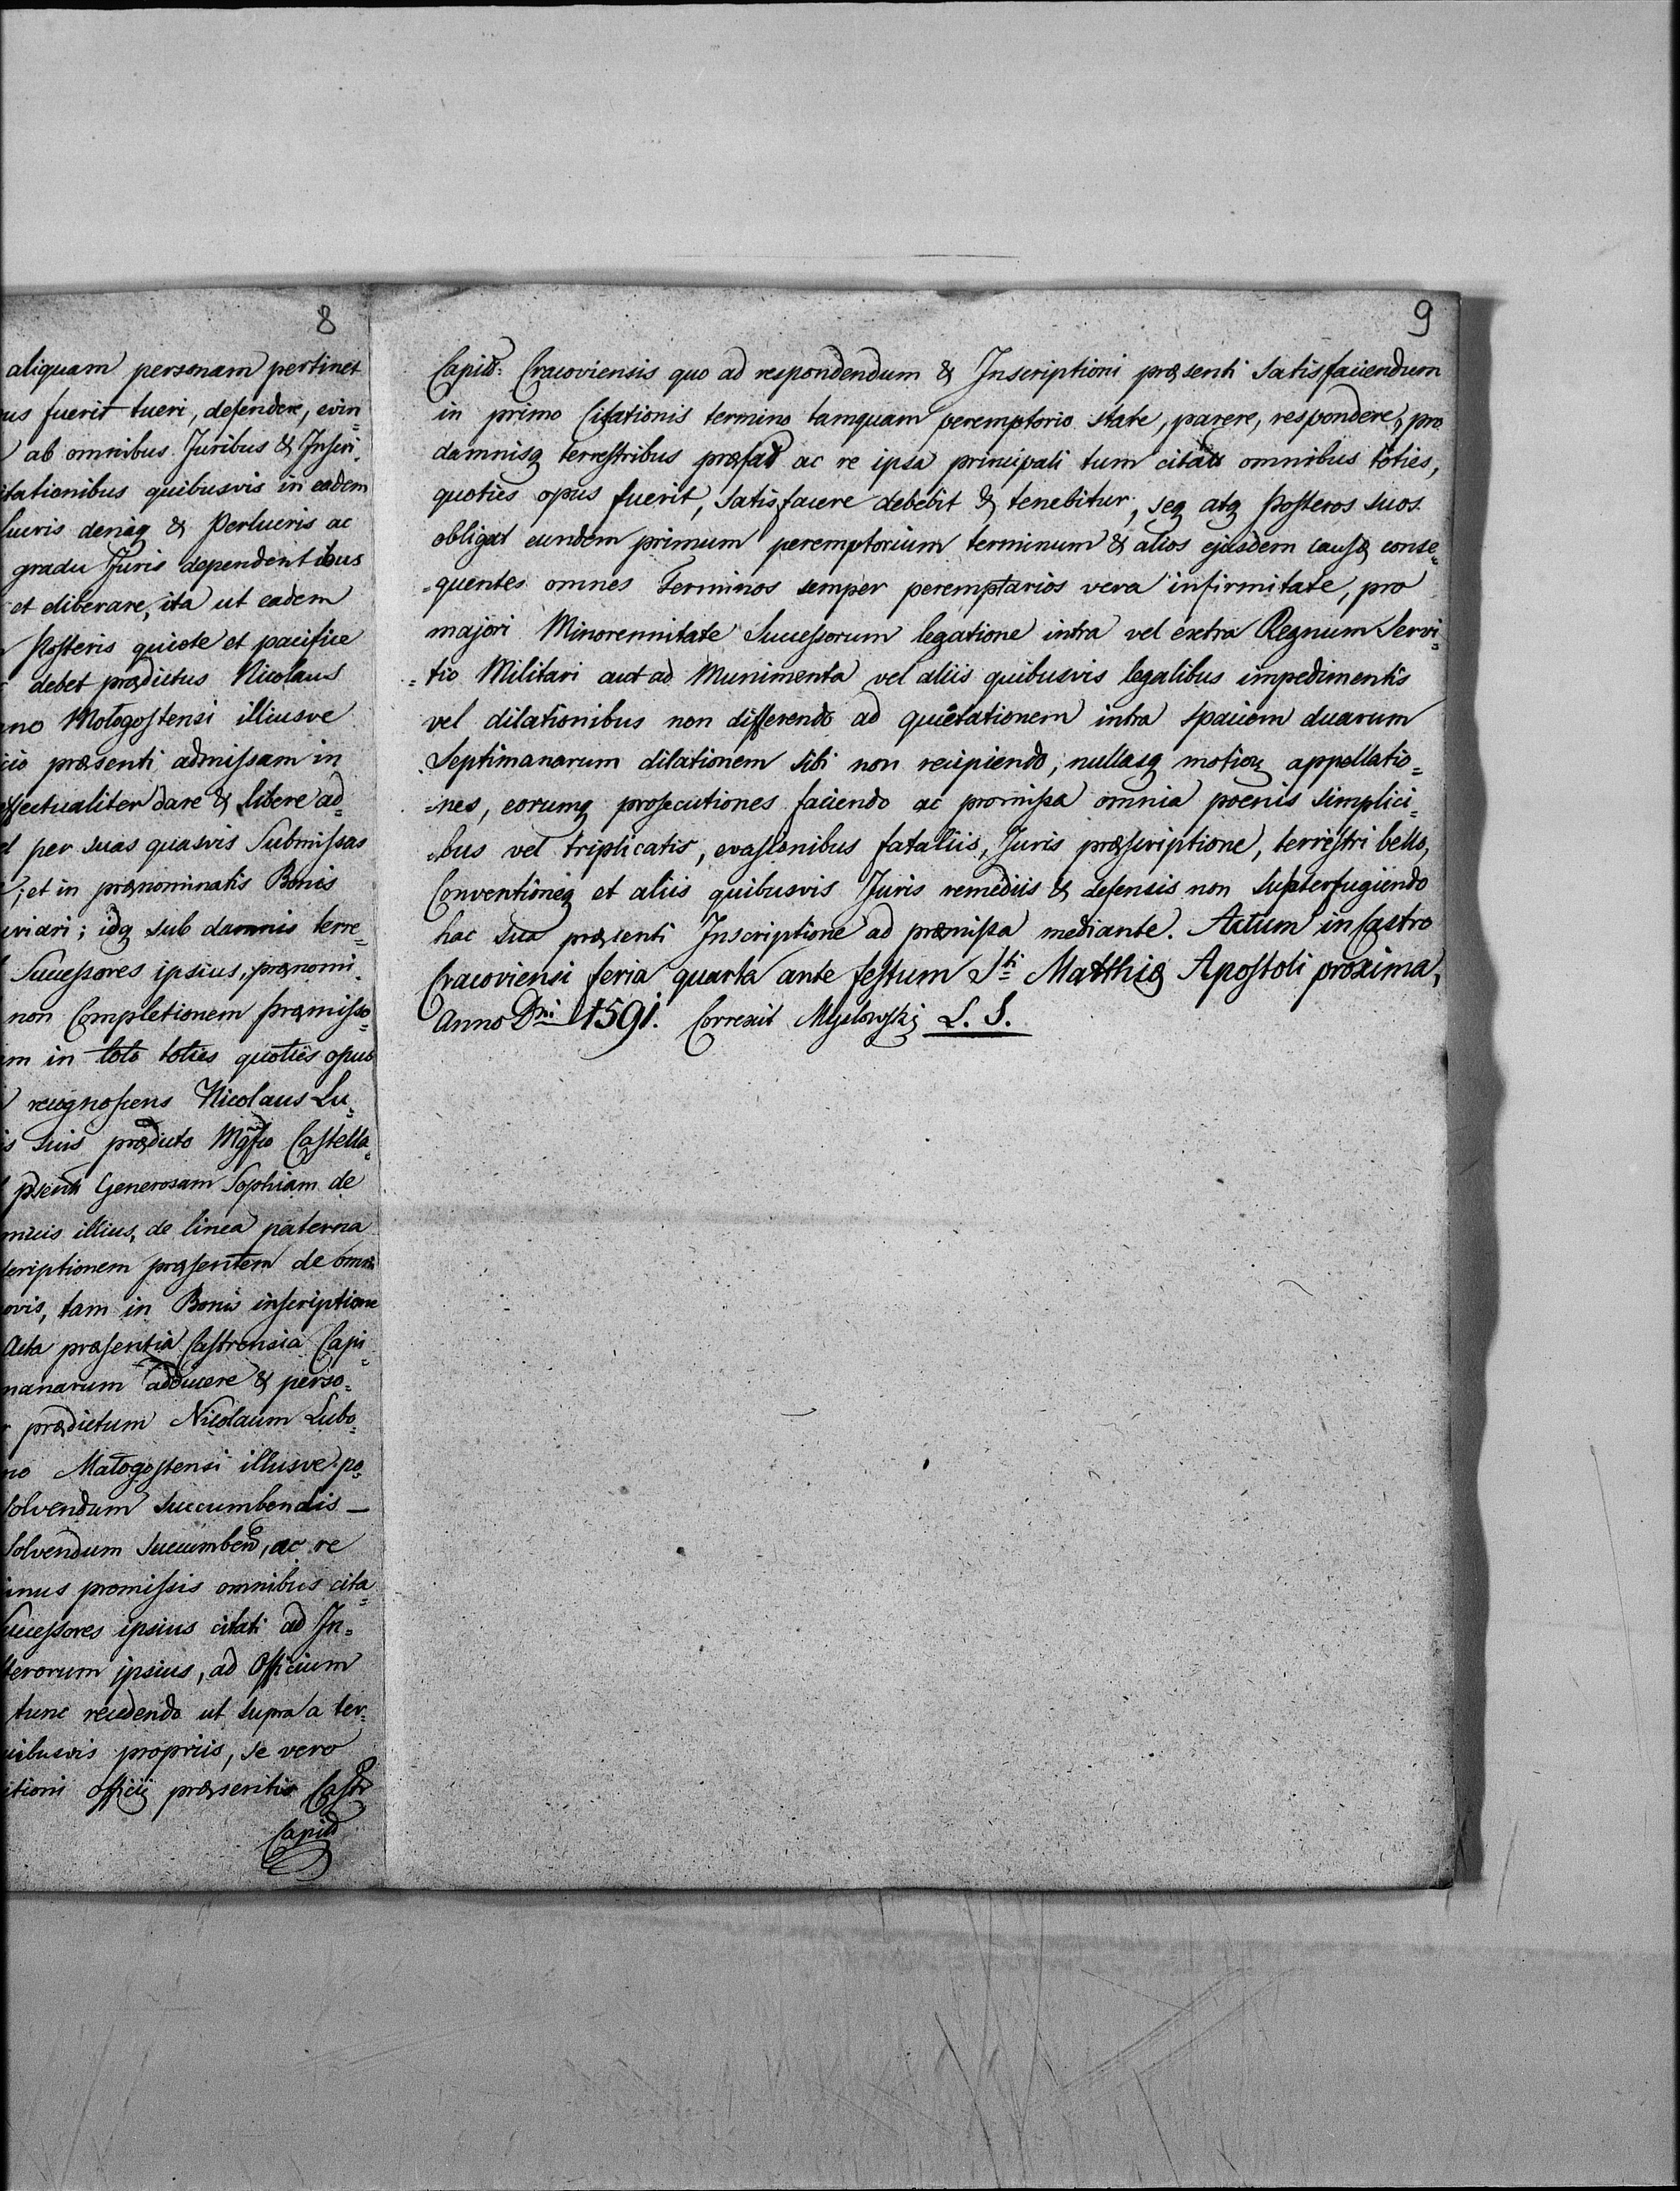 8
aliquam personam pertinet
us fuerit tueri, defendere, evin=
ab omnibus Juribus & Inscri=
itationibus quibusvis in eadem
lucris deniq & Perlucris ac
gradu Juris dependentibus
et eliberare, ita ut eadem
Posteris quiete et pacifice
debet prædictus Nicolaus
no Małogostensi illiusve
cio præsenti admissam in
effectualiter dare & libere ad=
per suas quasvis Submissas
; et in prænominatis Bonis
; idq sub damnis terre=
Successores ipsius, prænomi=
non Completionem præmisso=
m in toto toties quoties opus
recognoscens Nicolaus Lu=
is suis prædicto Mgfco Castella=
Generosam Sophiam de
illius, de linea paterna
scriptionem præsentem de omni
ovis, tam in Bonis inscriptione
Acta præsentia Castrensia Capi=
manarum adducere & perso=
prædictum Nicolaum Lubo=
no Małogostensi illiusve po=
solvendum succumbendis —
Solvendum succumbend, ac re
inus promissis omnibus cita=
Successores ipsius citati ad In=
terorum ipsius, ad Officium
tunc recedendo ut supra a ter=
uibusvis propriis, se vero
itioni officii præsentis Castr
Capid
9
Capid: Cracoviensis quo ad respondendum & Inscriptioni præsenti Satisfaciendum
in primo Citationis termino tamquam peremptorio stare, parere, respondere, pro
damnisq terrestribus præfat ac re ipsa principali tum citatis omnibus toties,
quoties opus fuerit, satisfacere debebit & tenebitur, seq atq Posteros suos
obligat eundem primum peremptorium terminum & alios ejusdem causæ conse=
=quentes omnes Terminos semper peremptarios vera infirmitate, pro
majori Minorennitate Successorum legatione intra vel extra Regnum Servi=
=tio Militari aut ad Munimenta vel aliis quibusvis legalibus impedimentis
vel dilationibus non differendo ad quietationem intra spacium duarum
Septimanarum dilationem sibi non recipiendo, nullasq motion appellatio=
=nes, eorumq prosecutiones faciendo ac promissa omnia poenis simplici=
=bus vel triplicatis, evasionibus fataliis, Juris præscriptione, terrestri bello,
Conventioneq et aliis quibusvis Juris remediis & defensis non subterfugiendo
hac sua præsenti Inscriptione ad præmissa mediante. Actum in Castro
Cracoviensi feria quarta ante festum Sti Matthiæ Apostoli proxima,
Anno Dni 1591. Correxit Mysłowski L. S.